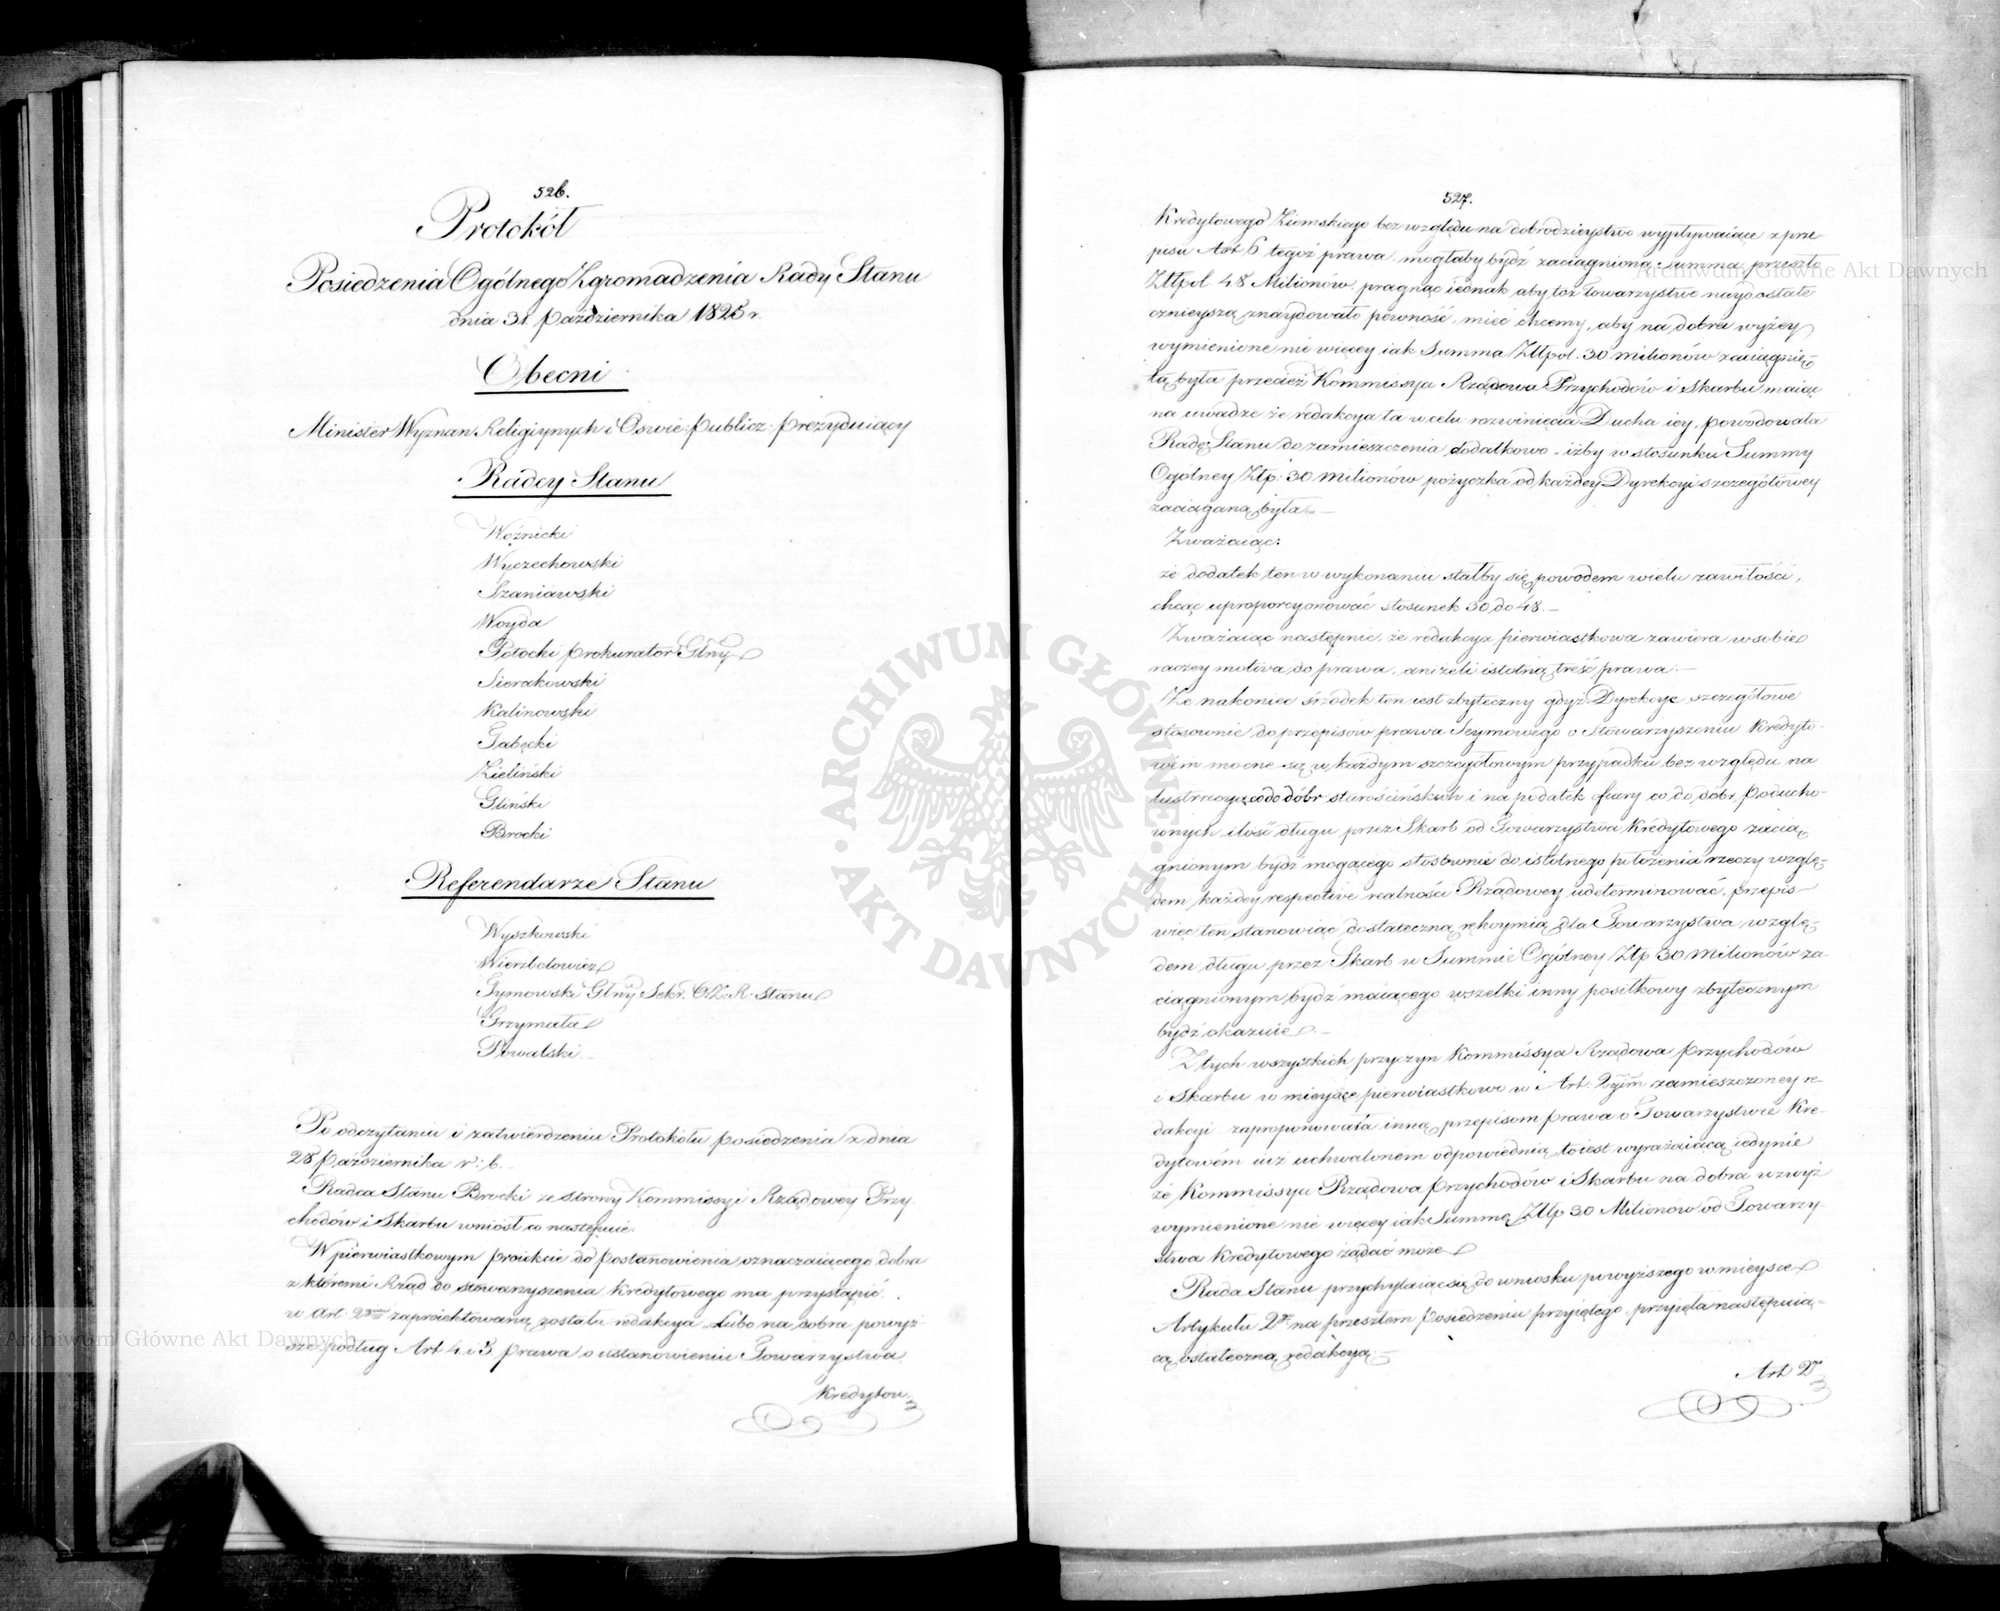 526.
Protokół
Posiedzenia Ogólnego Zgromadzenia Rady Stanu
dnia 31 Października 1825 r.
Obecni
Minister Wyznan Religiynych i Oswie: Publicz: Prezyduiący
Radcy Stanu
Woźnicki
Wyczechowski
Szaniawski
Woyda
Potocki Prokurator Głny
Sierakowski
Kalinowski
Gałęcki
Zieliński
Gliński
Brocki
Referendarze Stanu
Wyszkowski
Wierzbołowicz
Tymowski Głny Sekr. O.Z. R. Stanu
Grzymała
Nowalski
Po odczytaniu i zatwierdzeniu Protokołu posiedzenia z dnia
28 Października r: b.
Radca Stanu Brocki ze strony Kommissyi Rządowey Przy
chodów i Skarbu wniósł co następuie.
W pierwiastkowym proiekcie do Postanowienia oznaczaiącego dobra
z któremi Rząd do stowarzyszenia Kredytowego ma przystąpić
w Art. 2 zaproiektowaną została redakcya Lubo na dobra powyż
sze podług Art 4 i 5 prawa o ustanowieniu Towarzystwa
Kredytow.
527.
Kredytowego Ziemskiego bez względu na dobrodzieystwo wypływaiące z prze
pisu Art 6 tegoż prawa, mogłaby bydź zaciągniona Summa przeszło
Złtpol. 48 Milionów, pragnąc iednak aby toż Towarzystwo naydostate
cznieyszą znaydowało pewność, mieć chcemy, aby na dobra wyżey
wymienione nie więcey iak Summa Złtpol. 30 milionów zaciągnię-
tą była przecież Kommissya Rządowa Przychodów i Skarbu maiąc
na uwadze że redakcya ta w celu rozwinięcia Ducha iey, powodowała
Radę Stanu do zamieszczenia dodatkowo „ iżby w stosunku Summy
Ogólney Złtp: 30 Milionów pożyczka od każdey Dyrekcyi szczegółowey
zaciąganą była. —
Zważaiąc:
że dodatek ten w wykonaniu stałby się powodem wielu zawiłości,
chcąc uproporcyonować stosunek 30 do 48. —
Zważaiąc następnie, że redakcya pierwiastkowa zawiera w sobie
raczey motiva do prawa, aniżeli istotną treść prawa. —
Że nakoniec środek ten iest zbyteczny gdyż Dyrekcye szczegółowe
stosownie do przepisów prawa Seymowego o Stowarzyszeniu Kredyto-
wém mocne są w każdym szczegółowym przypadku bez względu na
lustracyą co do dóbr starościńskich i na podatek ofiary co do dóbr poducho-
wnych ilość długu przez Skarb od Towarzystwa Kredytowego zacią
gnionym bydź mogącego stosownie do istotnego położenia rzeczy wzglę-
dem każdey respective realności Rządowey udeterminować, przepis
więc ten stanowiąc dostateczną rękoymią dla Towarzystwa wzglę-
dem długu przez Skarb w Summie Ogólney Złtp 30 milionów za-
ciągnionym bydź maiącego wszelki inny posiłkowy zbytecznym
bydź okazuie. —
Z tych wszystkich przyczyn Kommissya Rządowa Przychodów
i Skarbu w mieysce pierwiastkowo w Art. 2gim zamieszczoney re-
dakcyi zaproponowała inną przepisom prawa o Towarzystwie Kre-
dytowém iuż uchwalonem odpowiednią, to iest wyrażaiącą iedynie
że Kommissya Rządowa Przychodów i Skarbu na dobra wzwyż
wymienione nie więcey iak Summę Złtp 30 Milionów od Towarzy-
stwa Kredytowego żądać może
Rada Stanu przychylaiąc się do wniosku powyższego w mieysce
Artykułu 2go na przeszłem Posiedzeniu przyiętego, przyięła następuią-
cą ostateczną redakcyą —
Art 2
ARCHIWUM GŁÓWNE AKT DAWNYCH
Archiwum Główne Akt Dawnych
Archiwum Główne Akt Dawnych